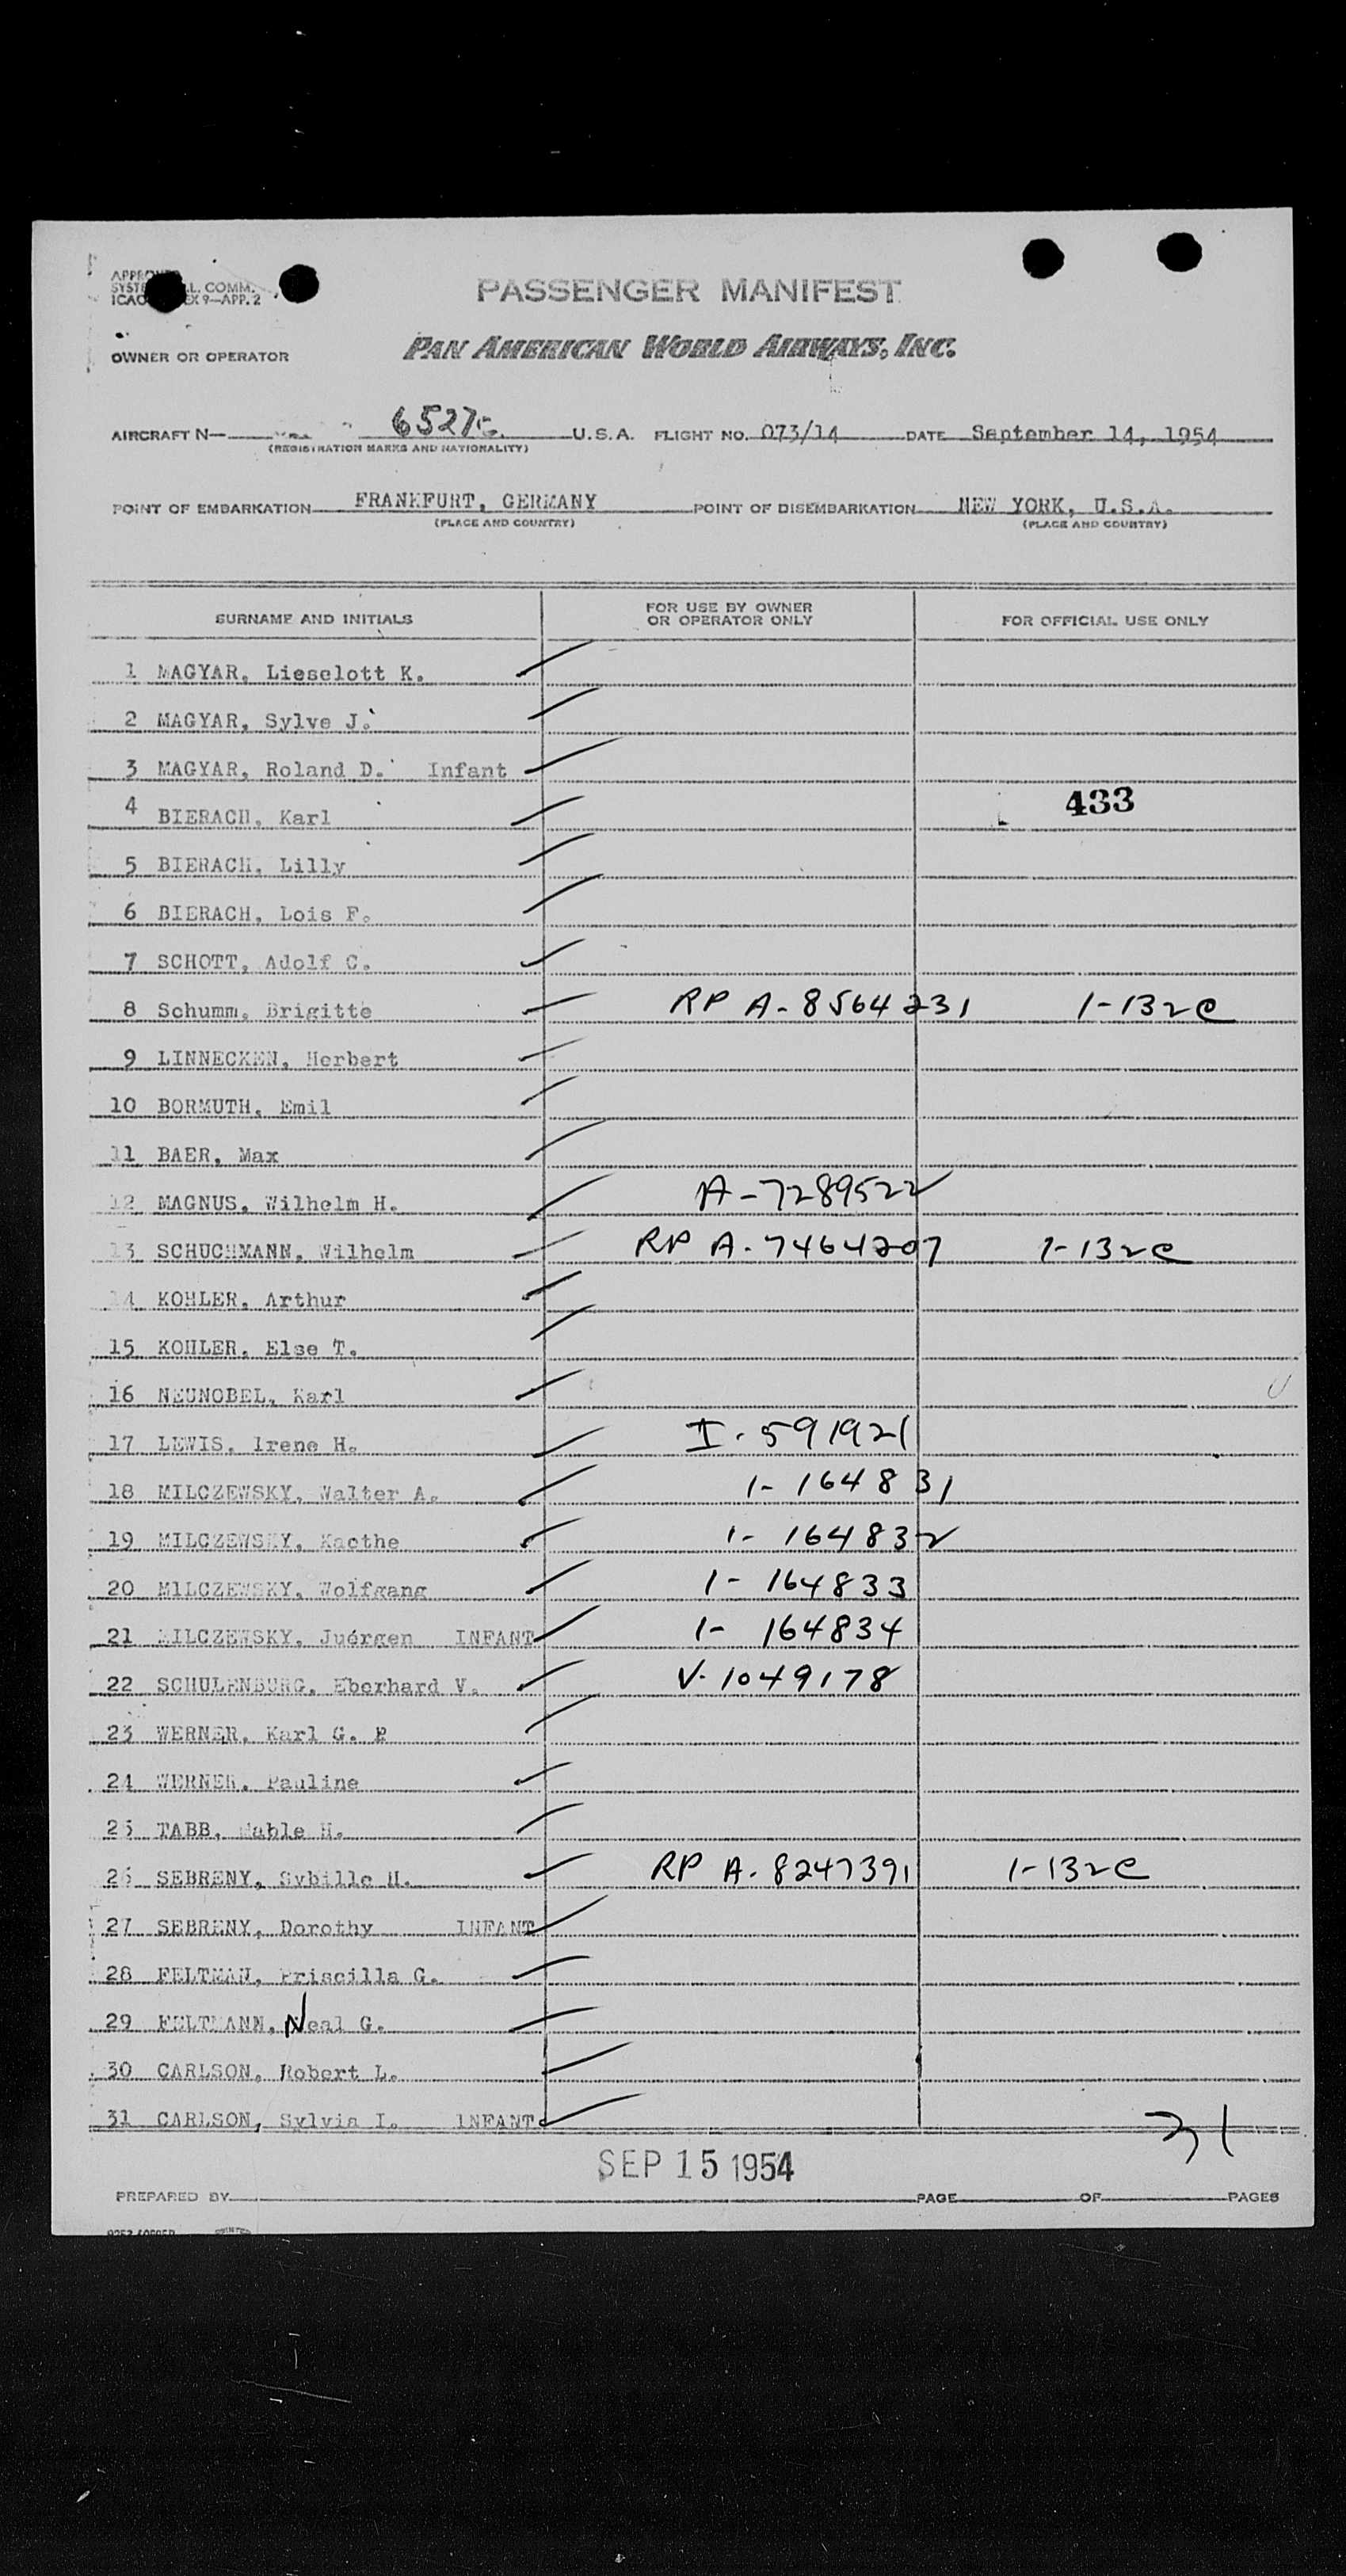 APPROVED
SYSTE L. COMM.
ICAO EX 9—APP. 2
PASSENGER MANIFEST
OWNER OR OPERATOR PAN AMERICAN WORLD AIRWAYS, INC.
AIRCRAFT N— 6527C U.S.A. FLIGHT NO. 073/14 DATE September 14, 1954
(REGISTRATION MARKS AND NATIONALITY)
POINT OF EMBARKATION FRANKFURT, GERMANY POINT OF DISEMBARKATION NEW YORK, U.S.A.
(PLACE AND COUNTRY) (PLACE AND COUNTRY)
SURNAME AND INITIALS FOR USE BY OWNER OR OPERATOR ONLY FOR OFFICIAL USE ONLY
1 MAGYAR, Lieselott K.
2 MAGYAR, Sylve J.
3 MAGYAR, Roland D. Infant
4 BIERACH, Karl 433
5 BIERACH, Lilly
6 BIERACH, Lois F.
7 SCHOTT, Adolf C.
8 Schumm, Brigitte RP A-8564231 1-132c
9 LINNECKEN, Herbert
10 BORMUTH, Emil
11 BAER, Max
12 MAGNUS, Wilhelm H. A-7289522
13 SCHUCHMANN, Wilhelm RP A-7464207 1-132c
14 KOHLER, Arthur
15 KOHLER, Else T.
16 NEUNOBEL, Karl
17 LEWIS, Irene H. I-591921
18 MILCZEWSKY, Walter A. 1-164831
19 MILCZEWSKY, Kaethe 1-164832
20 MILCZEWSKY, Wolfgang 1-164833
21 MILCZEWSKY, Juergen INFANT 1-164834
22 SCHULENBURG, Eberhard V. V-1049178
23 WERNER, Karl G. P
24 WERNER, Pauline
25 TABB, Mable H.
26 SEBRENY, Sybille H. RP A-8247391 1-132c
27 SEBRENY, Dorothy INFANT
28 FELTMAN, Priscilla G.
29 FELTMANN, Neal G.
30 CARLSON, Robert L.
31 CARLSON, Sylvia I. INFANT
31
SEP 15 1954
PREPARED BY PAGE OF PAGES